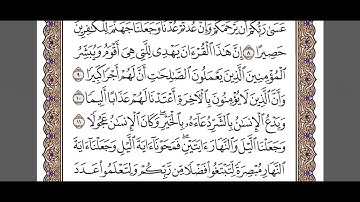 عَسَىٰ رَبُّكُمْ أَن يَرْحَمَكُمْ وَإِنْ عُدتُّمْ عُدْنَا وَجَعَلْنَا جَهَنَّمَ لِلْكَٰفِرِينَ
حَصِيرًا ٨ إِنَّ هَٰذَا الْقُرْءَانَ يَهْدِى لِلَّتِى هِىَ أَقْوَمُ وَيُبَشِّرُ
الْمُؤْمِنِينَ الَّذِينَ يَعْمَلُونَ الصَّٰلِحَٰتِ أَنَّ لَهُمْ أَجْرًا كَبِيرًا ٩
وَأَنَّ الَّذِينَ لَا يُؤْمِنُونَ بِالْءَاخِرَةِ أَعْتَدْنَا لَهُمْ عَذَابًا أَلِيمًا ١٠
وَيَدْعُ الْإِنسَٰنُ بِالشَّرِّ دُعَآءَهُۥ بِالْخَيْرِ وَكَانَ الْإِنسَٰنُ عَجُولًا ١١
وَجَعَلْنَا الَّيْلَ وَالنَّهَارَ ءَايَتَيْنِ فَمَحَوْنَآ ءَايَةَ الَّيْلِ وَجَعَلْنَآ ءَايَةَ
النَّهَارِ مُبْصِرَةً لِّتَبْتَغُوا۟ فَضْلًا مِّن رَّبِّكُمْ وَلِتَعْلَمُوا۟ عَدَدَ